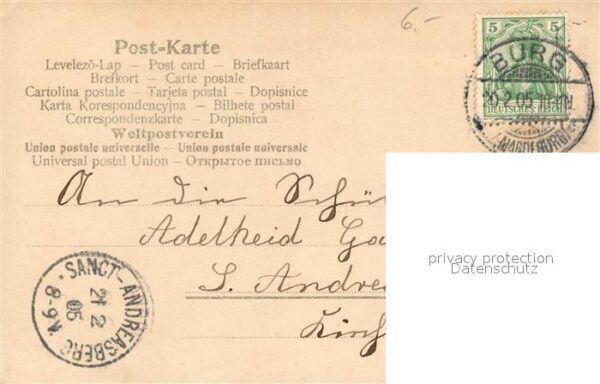 6.-
Post-Karte
Levelezö-Lap — Post card — Briefkaart
Brefkort — Carte postale
Cartolina postale — Tarjeta postal — Dopisnice
Karta Korespondencyjna — Bilhete postal
Correspondenzkarte — Dopisnica
Weltpostverein
Union postale universelle — Union postale universale
Universal postal Union — Открытое письмо
5 5
BURG
20.2.05
DEUTSCHES
An die Schü
Adelheid
S. Andrea
Kirch
privacy protection
Datenschutz
SANCT-ANDREASBERG
21 2
05
8-9 N.